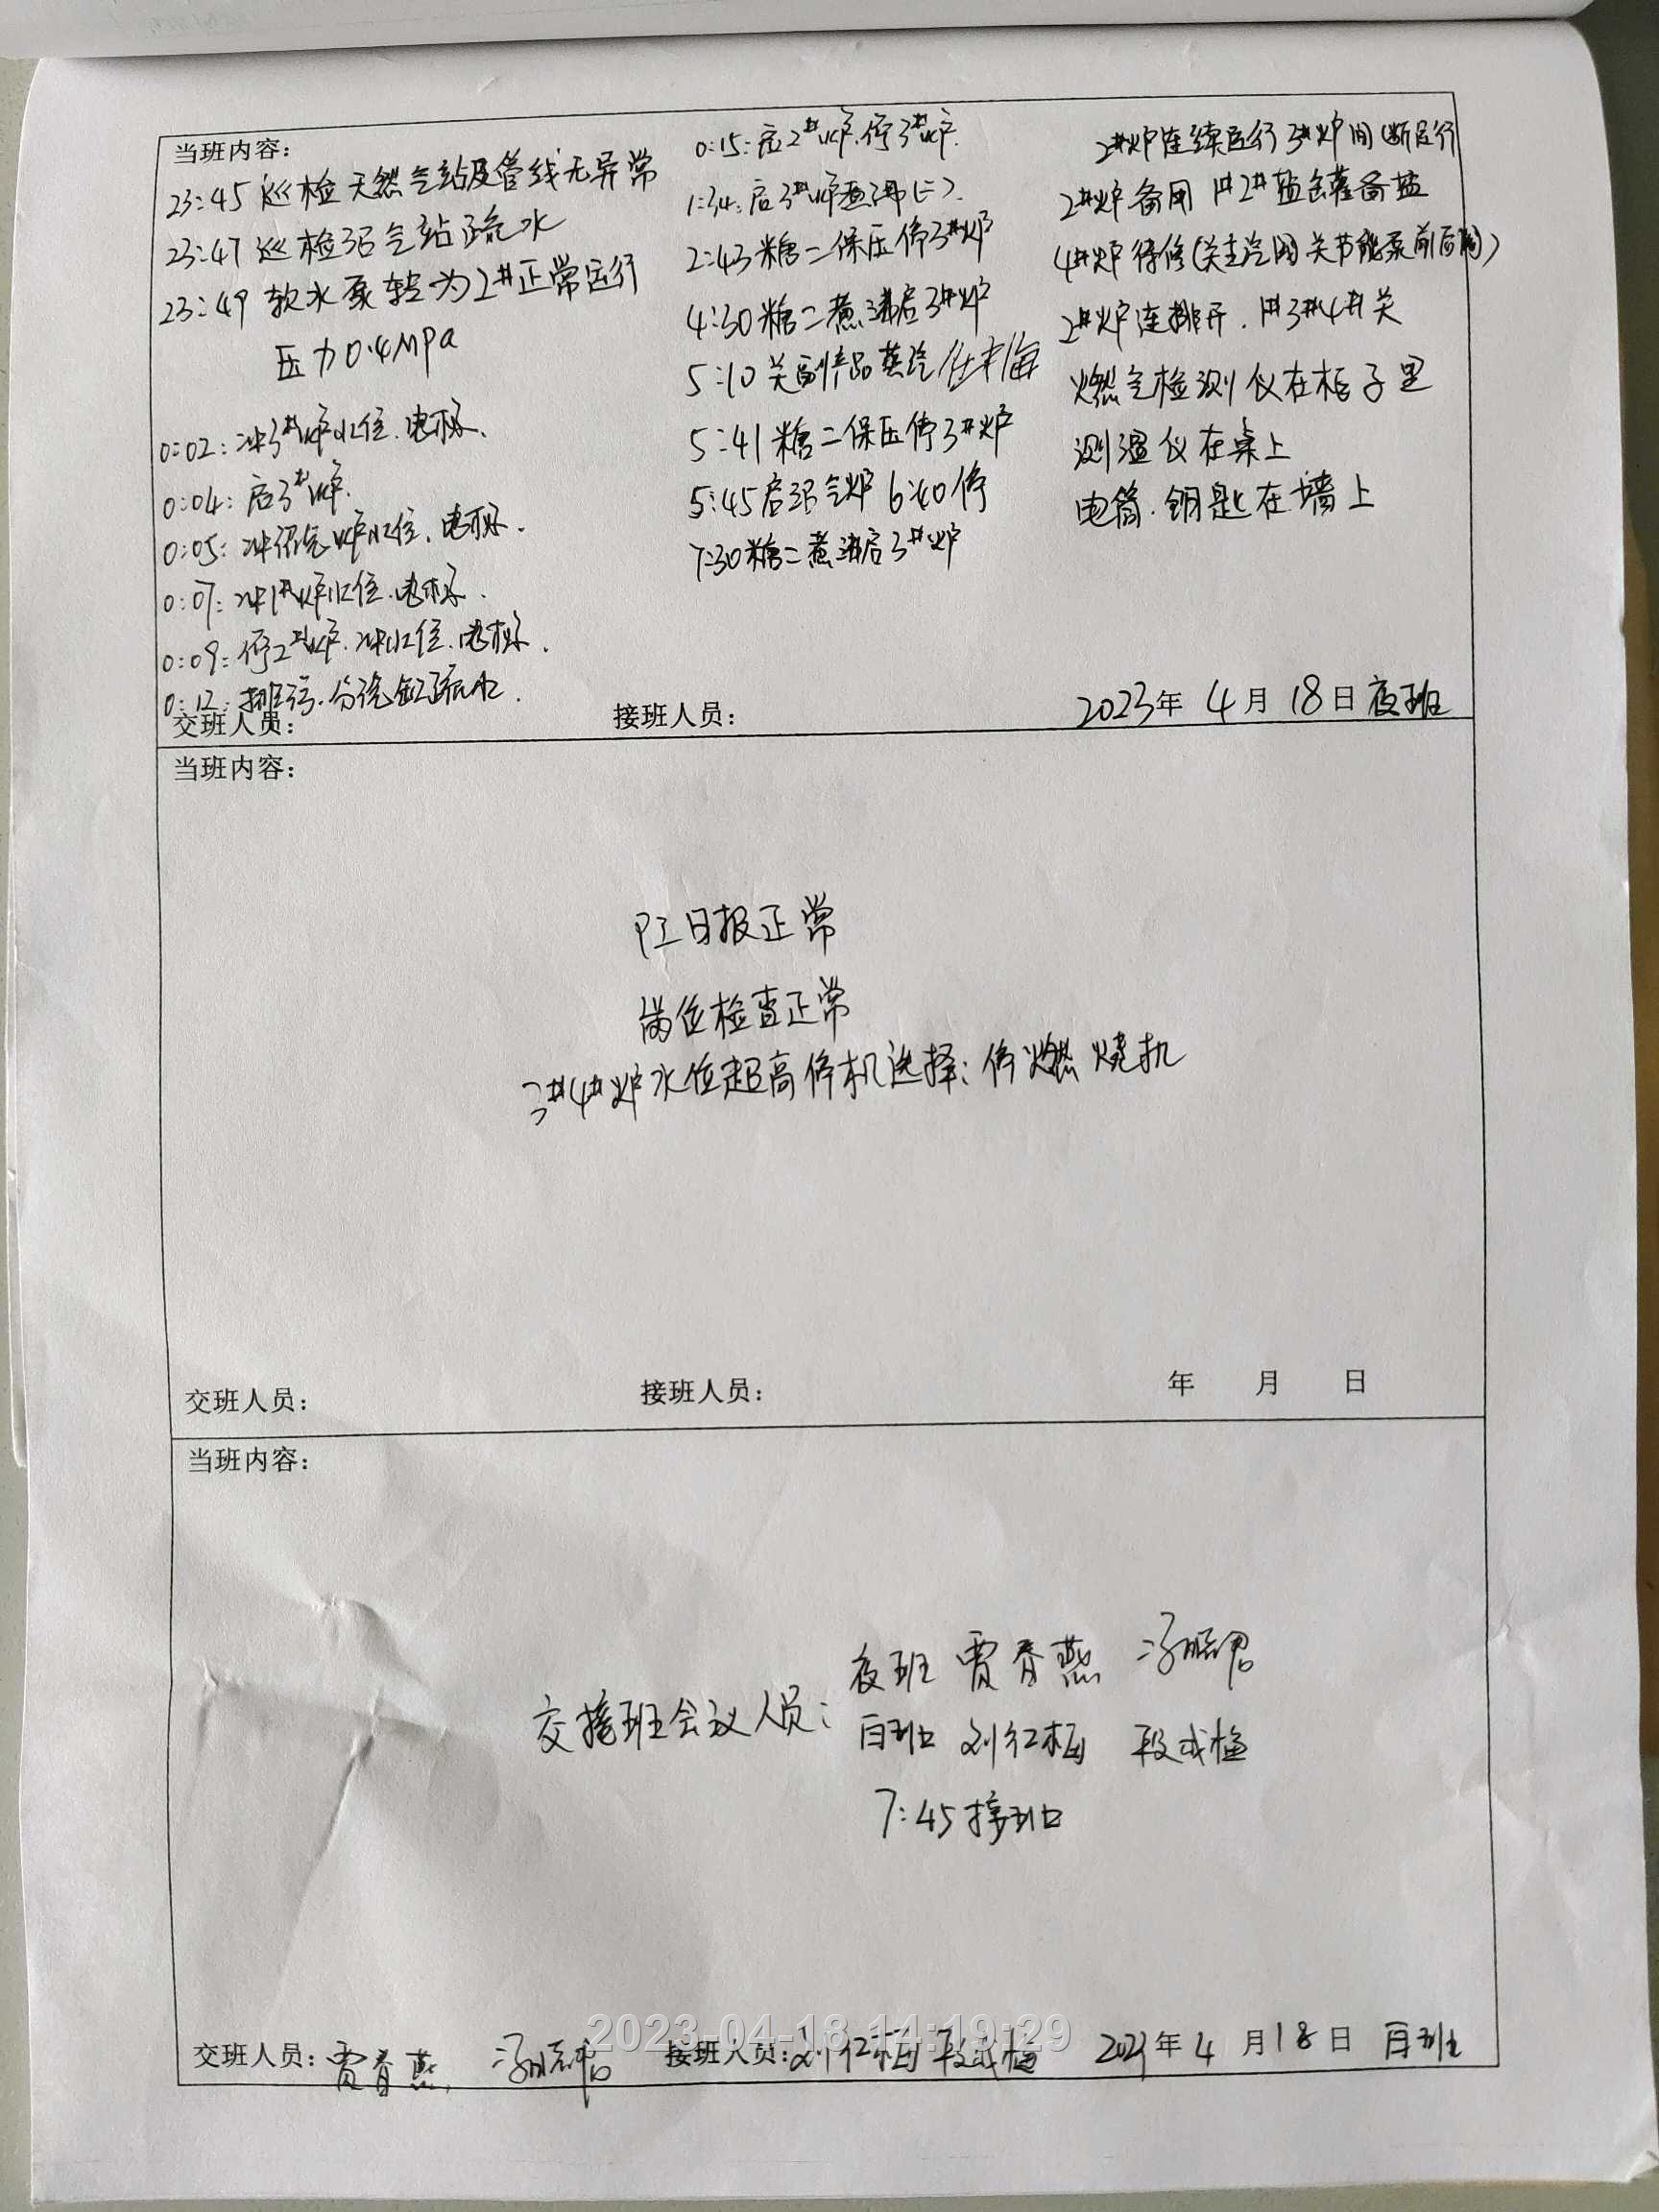 当班内容：
23:45 巡检天然气站及管线无异常
23:47 巡检沼气站疏水
23:49 软水泵转为2#正常运行
压力0.4MPa
0:02：冲3#炉水位、电极、
0:04：启3#炉.
0:05：冲沼气炉水位、电极.
0:07：冲1#炉水位、电极.
0:09：停2#炉、冲水位、电极.
0:12：排污、分汽缸疏水.
0:15：启2#炉、停3#炉.
1:34：启3#炉煮沸(二).
2:43 糖二保压停3#炉
4:30 糖二煮沸启3#炉
5:10 关副产品蒸汽
5:41 糖二保压停3#炉
5:45 启沼气炉 6:40停
7:30 糖二煮沸启3#炉
2#炉连续运行 3#炉间断运行
2#炉备用 1#2#盐罐备盐
4#炉待修(关主汽阀 关节能泵前后阀)
2#炉连排开、1#3#4#关
燃气检测仪在柜子里
测温仪在桌上
电筒、钥匙在墙上
交班人员：
接班人员：
2023年 4月 18日 夜班
当班内容：
日报正常
岗位检查正常
3#4#炉水位超高停机选择：停燃烧机
交班人员：
接班人员：
年 月 日
当班内容：
交接班会议人员：
夜班 贾春燕
白班 刘红梅 段成梅
7:45接班
交班人员：贾春燕、
接班人员：刘红梅 段成梅
2023年 4月18日 白班
2023-04-18 14:19:29